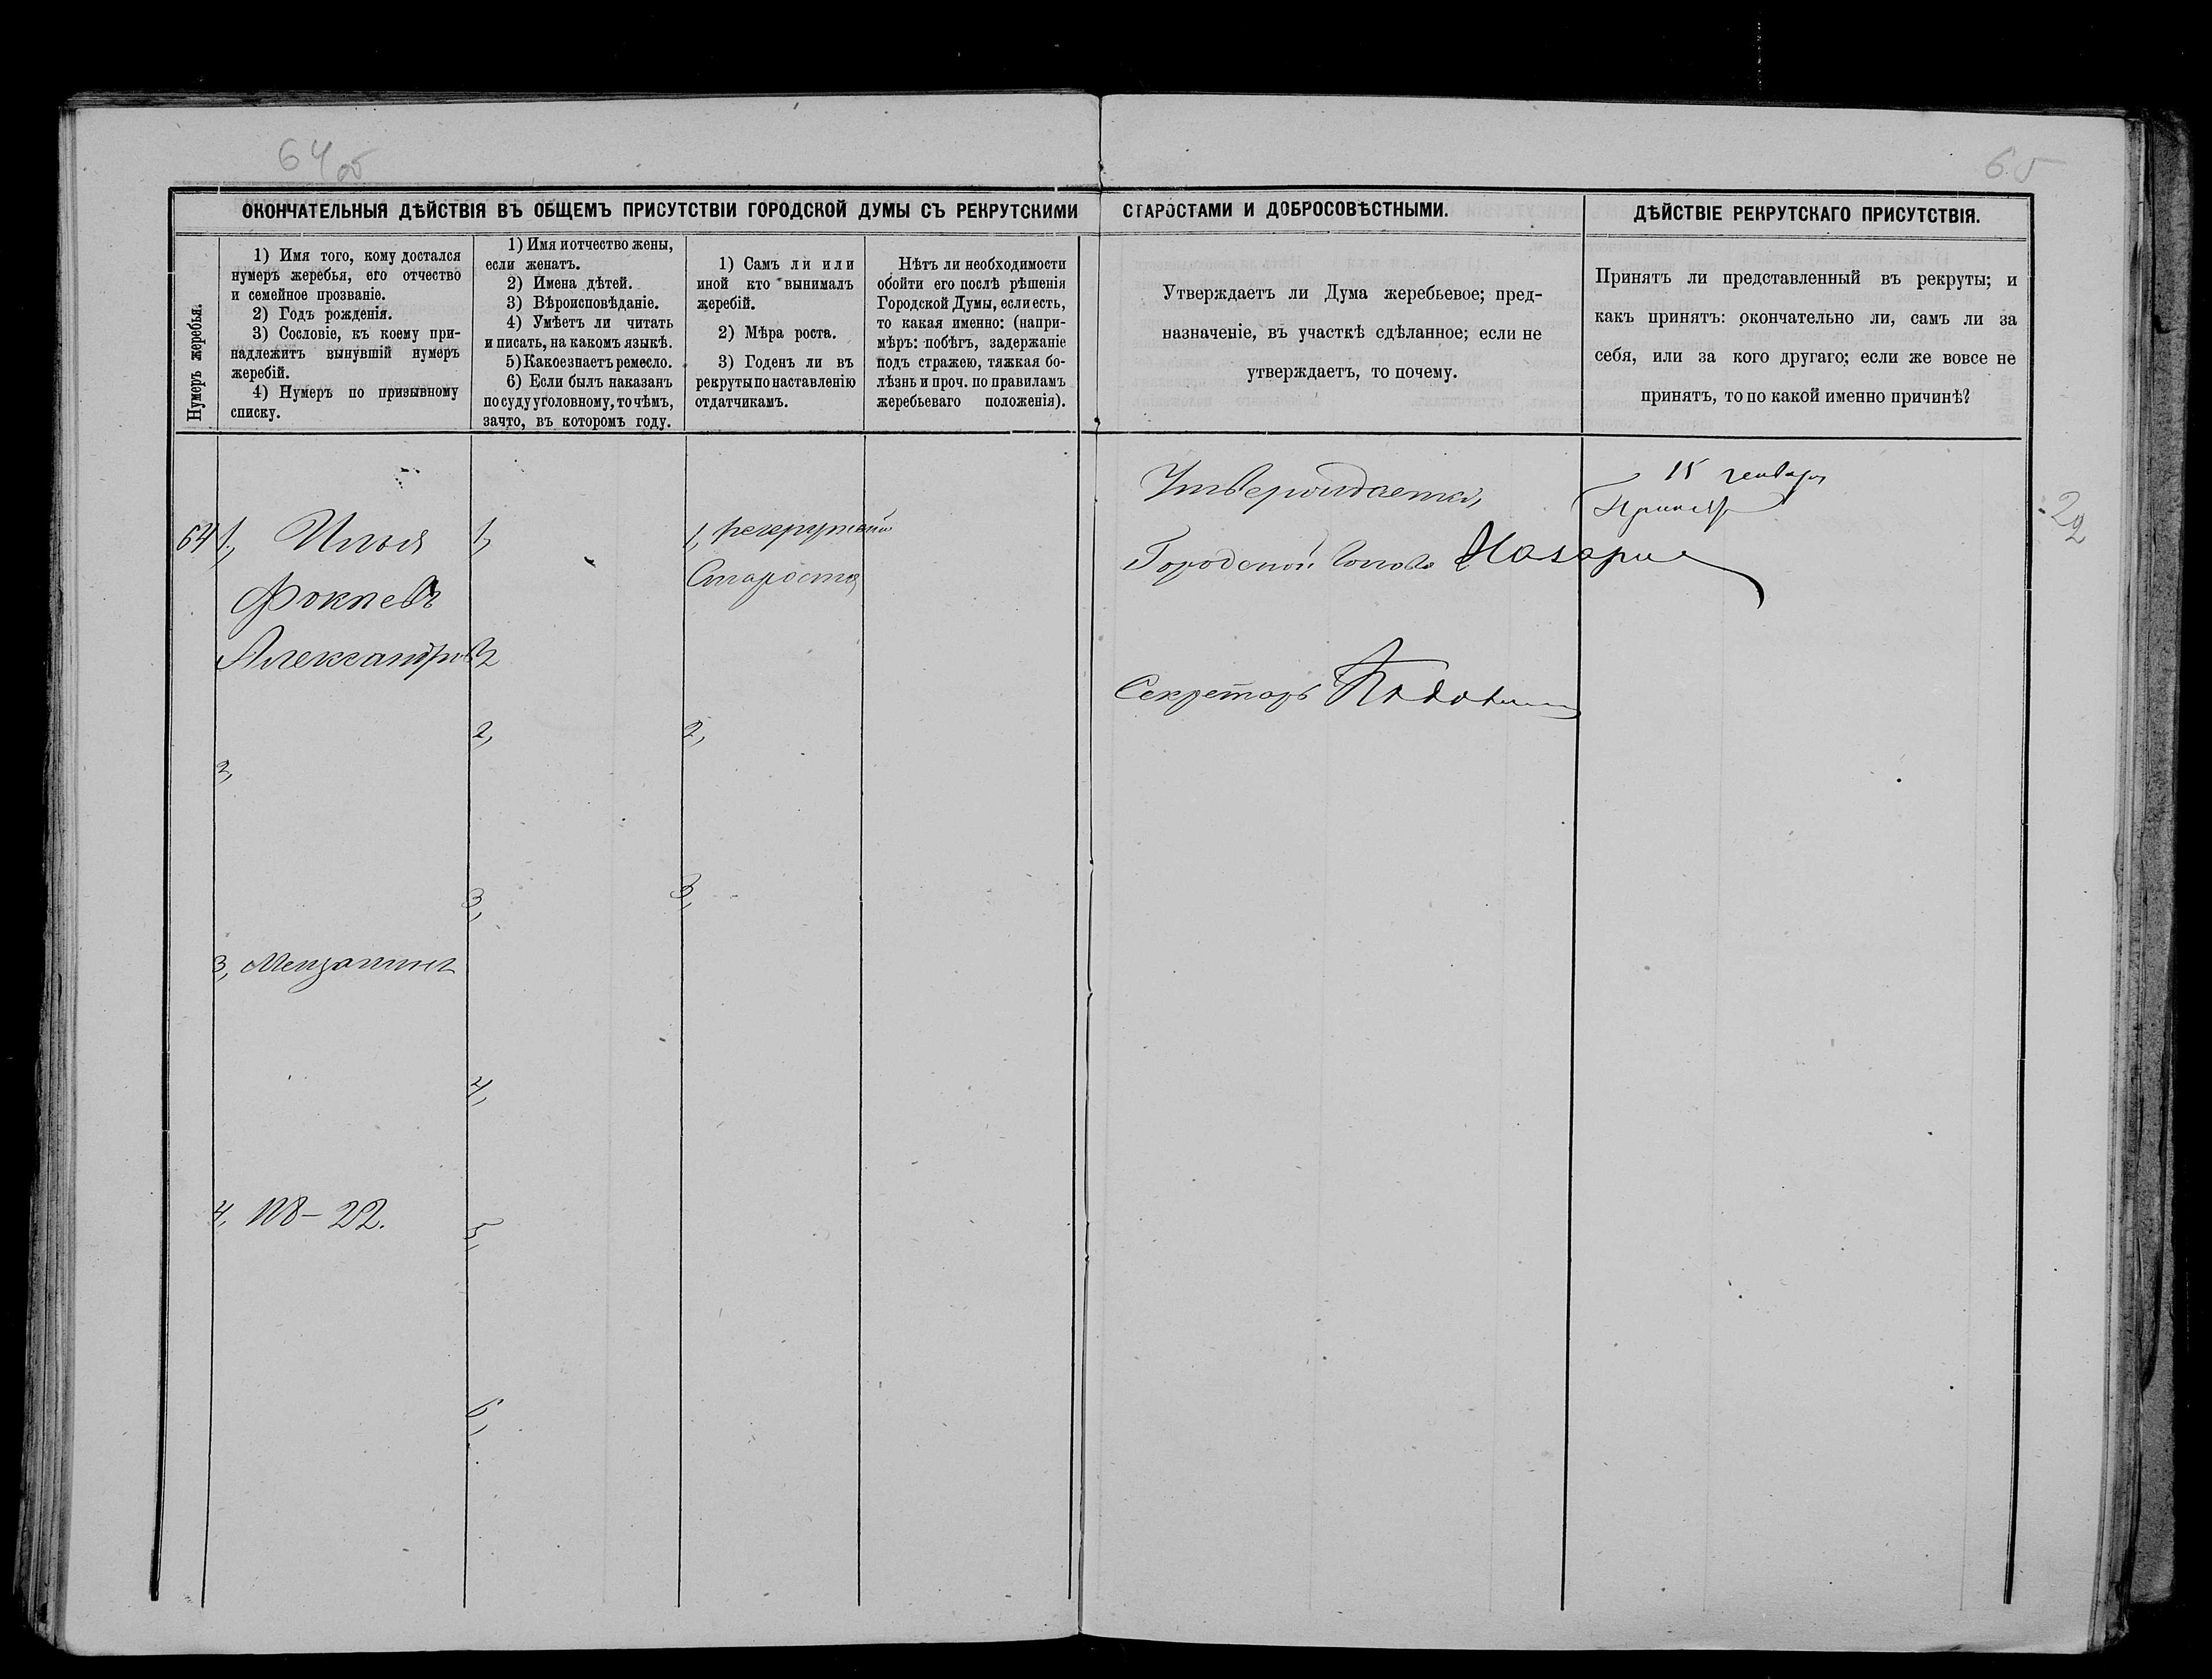 64 об
65
ОКОНЧАТЕЛЬНЫЯ ДѢЙСТВІЯ ВЪ ОБЩЕМЪ ПРИСУТСТВІИ ГОРОДСКОЙ ДУМЫ СЪ РЕКРУТСКИМИ СТАРОСТАМИ И ДОБРОСОВѢСТНЫМИ.
ДѢЙСТВІЕ РЕКРУТСКАГО ПРИСУТСТВІЯ.
Нумеръ жеребья.
1) Имя того, кому достался
нумеръ жеребья, его отчество
и семейное прозваніе.
2) Годъ рожденія.
3) Сословіе, къ коему при-
надлежитъ вынувшій нумеръ
жеребій.
4) Нумеръ по призывному
списку.
1) Имя и отчество жены,
если женатъ.
2) Имена дѣтей.
3) Вѣроисповѣданіе.
4) Умѣетъ ли читать
и писать, на какомъ языкѣ.
5) Какое знаетъ ремесло.
6) Если былъ наказанъ
по суду уголовному, то чѣмъ,
за что, въ которомъ году.
1) Самъ ли или
иной кто вынималъ
жеребій.
2) Мѣра роста.
3) Годенъ ли въ
рекруты по наставленію
отдатчикамъ.
Нѣтъ ли необходимости
обойти его послѣ рѣшенія
Городской Думы, если есть,
то какая именно: (напри-
мѣръ: побѣгъ, задержаніе
подъ стражею, тяжкая бо-
лѣзнь и проч. по правиламъ
жеребьеваго положенія).
Утверждаетъ ли Дума жеребьевое; пред-
назначеніе, въ участкѣ сдѣланное; если не
утверждаетъ, то почему.
Принятъ ли представленный въ рекруты; и
какъ принятъ: окончательно ли, самъ ли за
себя, или за кого другаго; если же вовсе не
принятъ, то по какой именно причинѣ?
64
1, Илья
Фокпевъ
Александровъ
2,
3, Мещанинъ
4, №8-22.
1,
2,
3,
4,
5,
6,
1, рекрутский
Староста
2,
3,
Утверждаетъ,
Городской Голова Назари
Секретарь
15 генваря
Принятъ
22